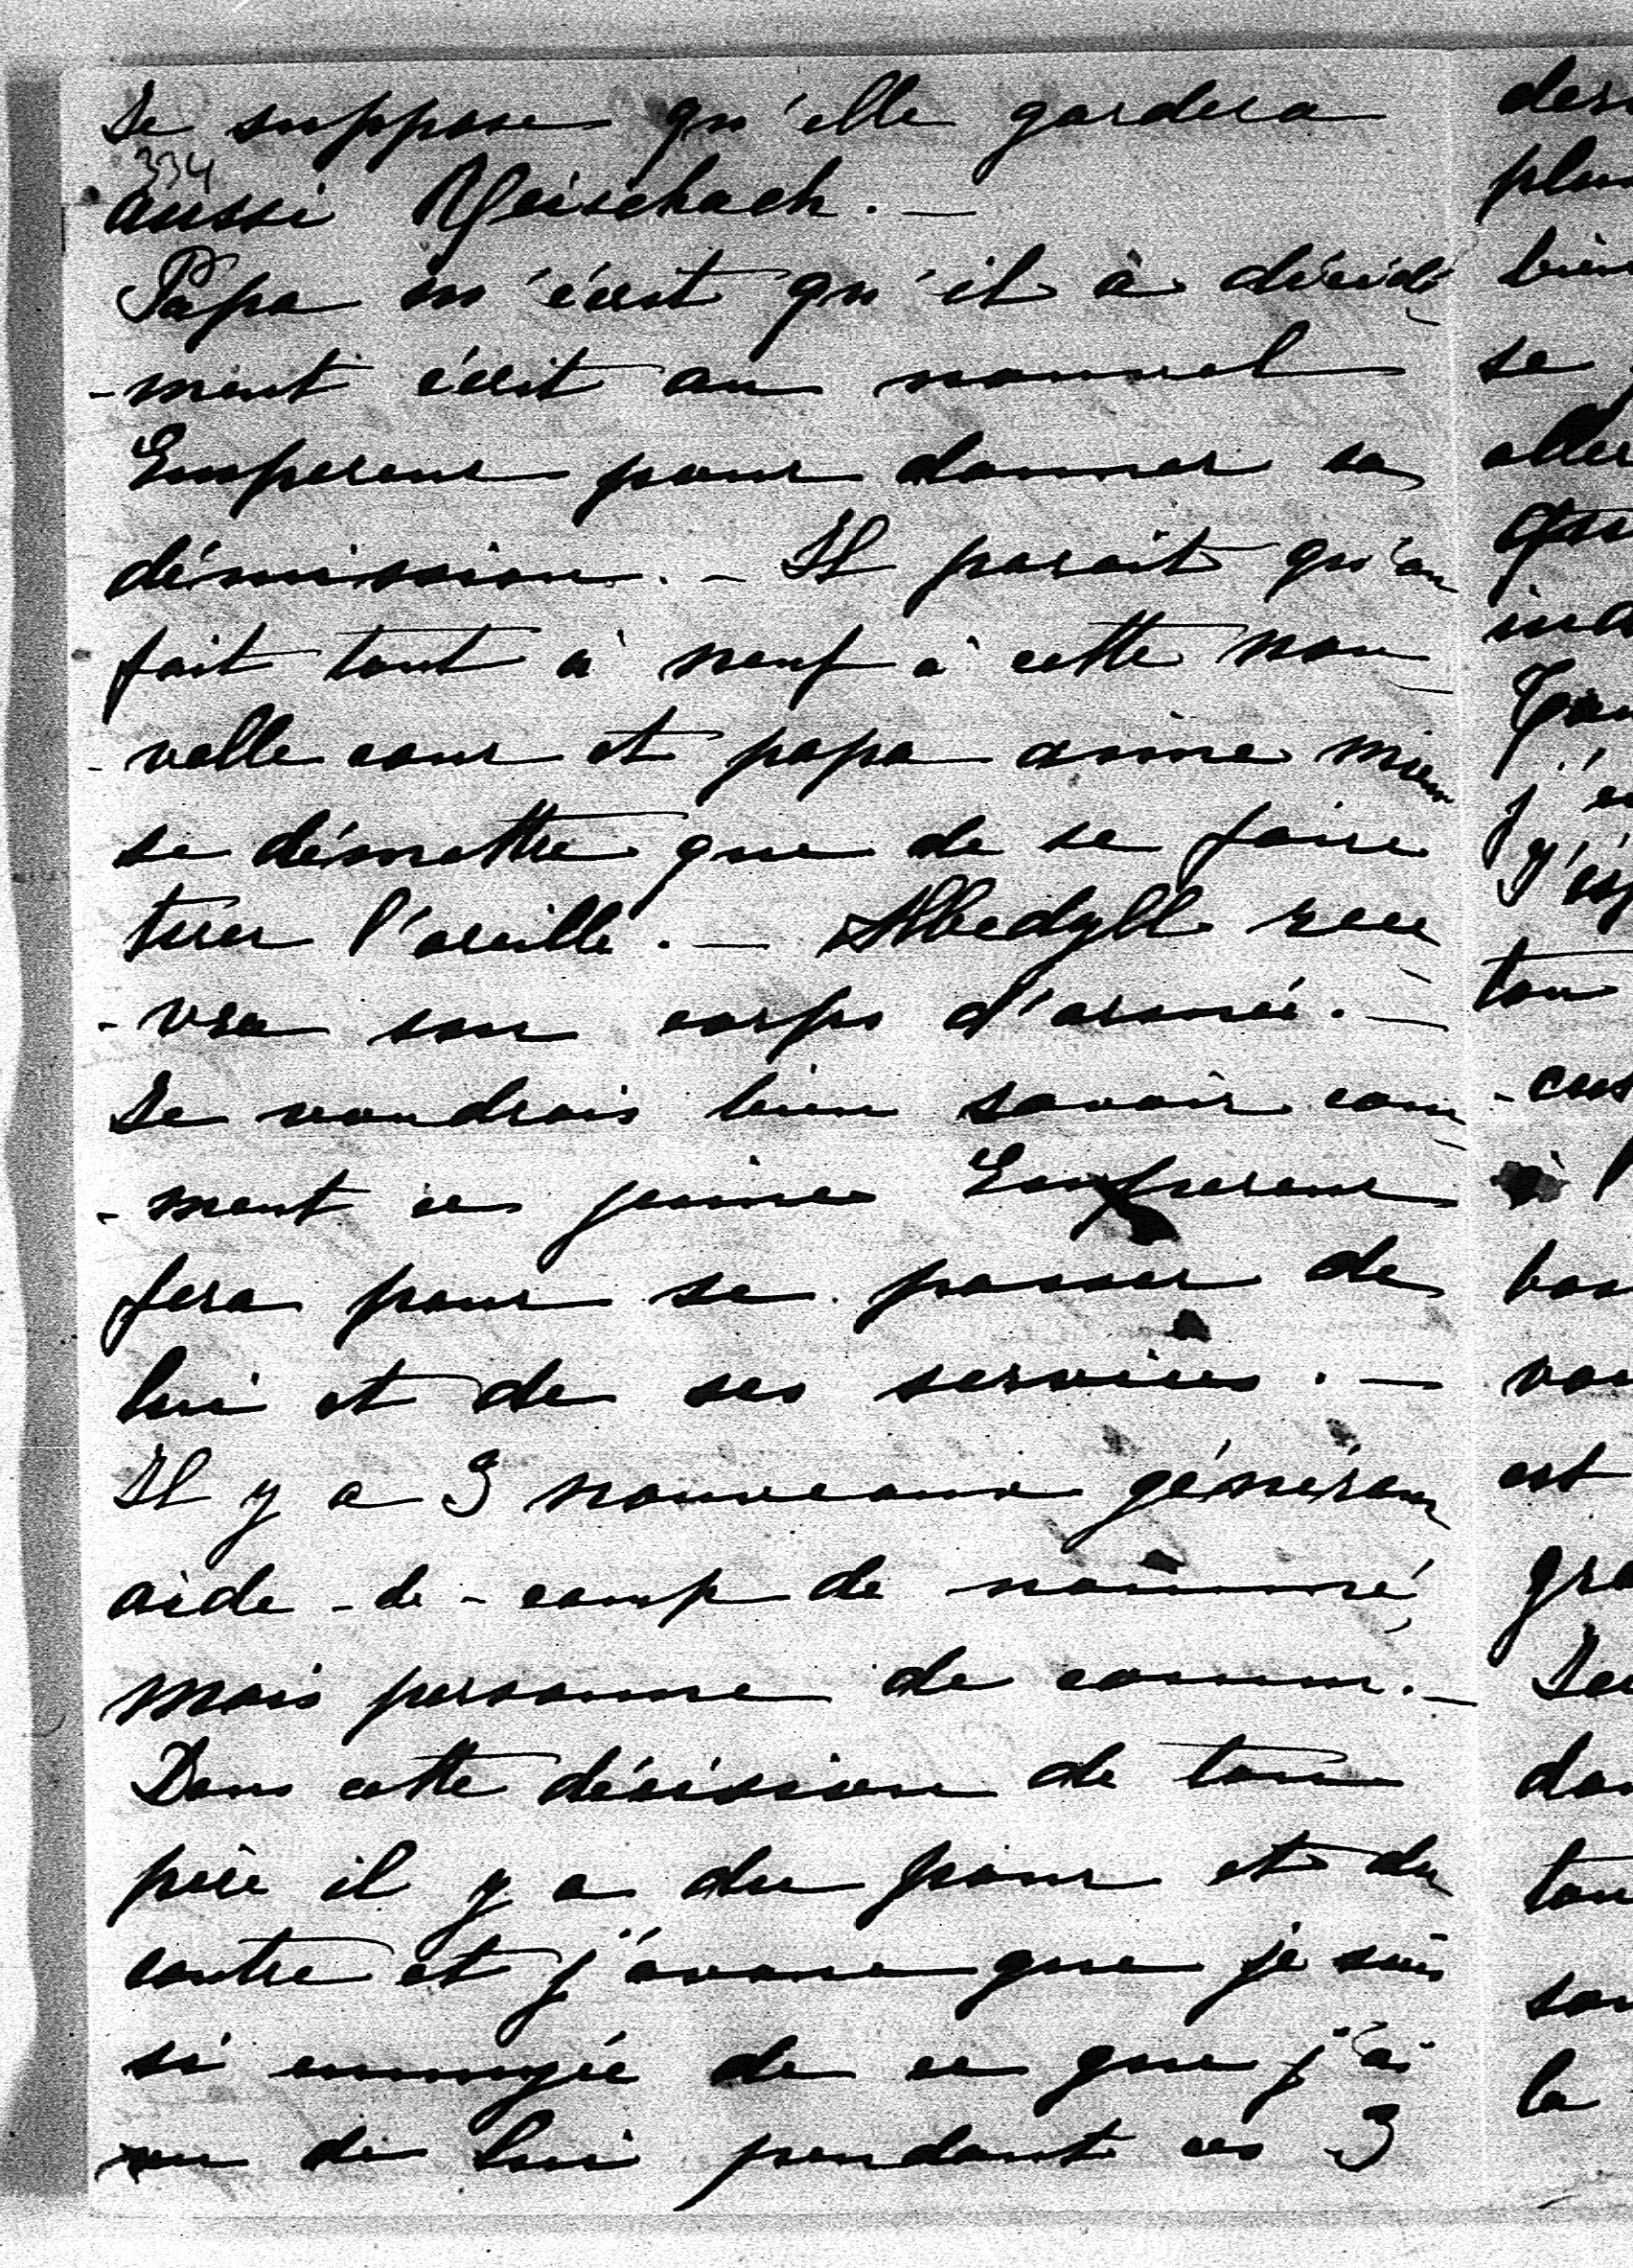 Je suppose qu'elle gardera
334
aussi Reischach. —
Papa m'écrit qu'il a décidé
-ment écrit au nouvel
Empereur pour donner sa
démission. — Il parait qu'on
fait tout à neuf à cette nou
-velle cour et papa aime mieux
se démettre que de se faire
tirer l'oreille. — Albedyll rece
-vra son corps d'armée. —
Je voudrais bien savoir com
-ment ce jeune Empereur
fera pour se passer de
lui et de ses services. —
Il y a 3 nouveaux généraux
aide-de-camp de nommé,
mais personne de connu. —
Dans cette désission de ton
père il y a du pour et du
contre et j'avoue que je suis
si ennuyée de ce que j'ai
vu de lui pendant ces 3